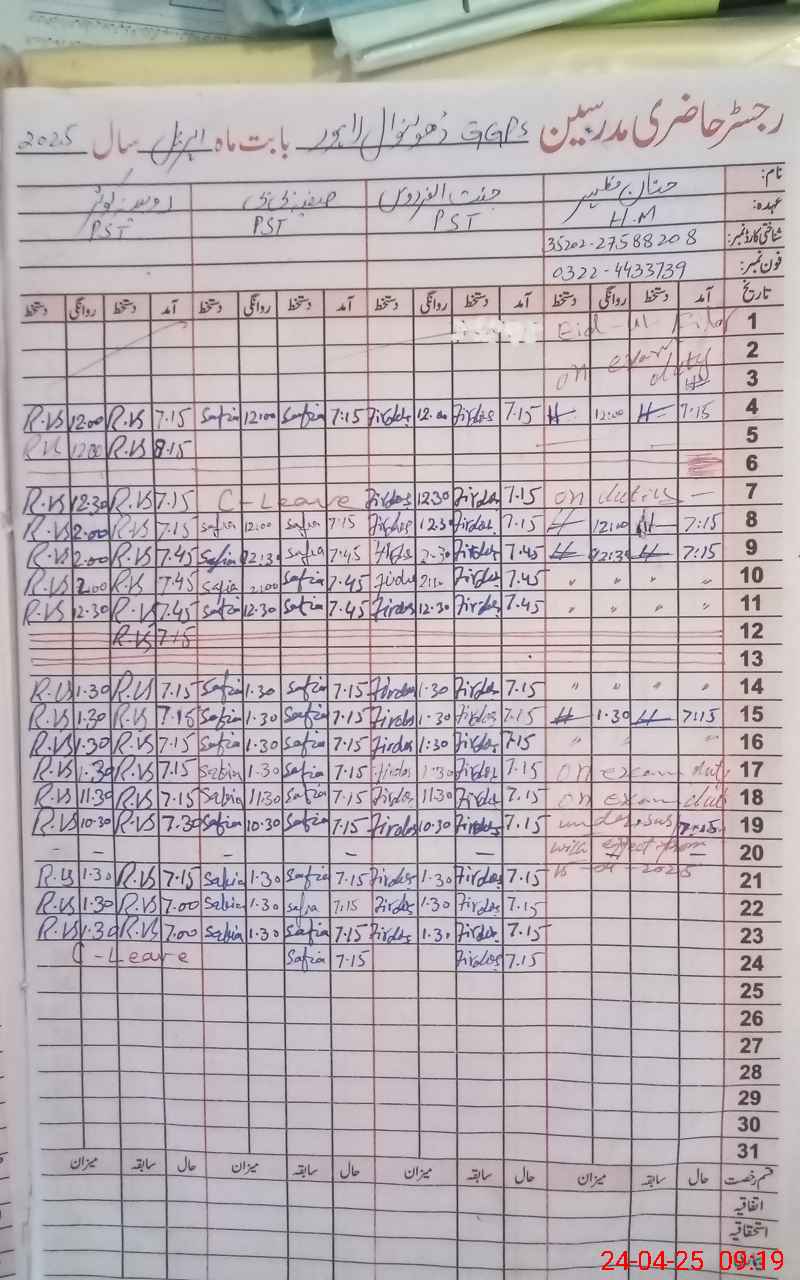 رجسٹر حاضری مدرسین GGPS ڈھولنوال لاہور بابت ماہ اپریل سال 2025
نام: حنان مظہر جنت الفردوس صفیہ بی بی
عہدہ: H.M PST PST PST
شناختی کارڈ نمبر: 35202-27588208
فون نمبر: 0322-4433739
تاریخ آمد دستخط روانگی دستخط آمد دستخط روانگی دستخط آمد دستخط روانگی دستخط آمد دستخط روانگی دستخط
1 Eid-ul-Fitar
2 on exam
3 duty
R.VS 12.00 R.VS 7.15 Safia 12:00 Safia 7:15 Firdos 12.00 Firdos 7.15 H 12:00 H 7:15 4
1200 R.VS 8.15 5
6
R.VS 12.30 R.VS 7.15 C-Leave Firdos 12.30 Firdos 7.15 on duty — 7
R.VS 2.00 R.VS 7.15 Safia 12:00 Safia 7:15 Firdos 12.30 Firdos 7.15 H 12:00 H 7:15 8
R.VS 2.00 R.VS 7.45 Safia 12:30 Safia 7.45 2.30 Firdos 7.45 H 12:30 H 7:15 9
R.VS 2.00 R.VS 7.45 Safia 2:00 Safia 7.45 Firdos Firdos 7.45 〃 〃 〃 〃 10
R.VS 12.30 R.VS 7.45 Safia 12.30 Safia 7.45 Firdos 12.30 Firdos 7.45 〃 〃 〃 〃 11
R.VS 7.15 12
13
R.VS 1.30 R.VS 7.15 Safia 1.30 Safia 7.15 Firdos 1.30 Firdos 7.15 〃 〃 〃 〃 14
R.VS 1.30 R.VS 7.15 Safia 1.30 Safia 7.15 Firdos 1.30 Firdos 7.15 H 1.30 H 7:15 15
R.VS 1.30 R.VS 7.15 Safia 1.30 Safia 7.15 Firdos 1:30 Firdos 7.15 〃 〃 〃 16
R.VS 1.30 R.VS 7.15 Safia 1.30 Safia 7.15 Firdos 1.30 Firdos 7.15 on exam duty 17
R.VS 11.30 R.VS 7.15 Safia 11.30 Safia 7.15 Firdos 11.30 Firdos 7.15 on exam duty 18
R.VS 10.30 R.VS 7.30 Safia 10.30 Safia 7.15 Firdos 10.30 Firdos 7.15 under sus 7:15 19
– – – – – with effect from 20
R.VS 1.30 R.VS 7.15 Safia 1.30 Safia 7.15 Firdos 1.30 Firdos 7.15 15-04-2025 21
R.VS 1.30 R.VS 7.00 Safia 1.30 Safia 7.15 Firdos 1.30 Firdos 7.15 22
R.VS 1.30 R.VS 7.00 Safia 1.30 Safia 7.15 Firdos 1.30 Firdos 7.15 23
C-Leave Safia 7.15 Firdos 7.15 24
25
26
27
28
29
30
31
قسم رخصت حال سابقہ میزان حال سابقہ میزان حال سابقہ میزان حال سابقہ میزان
اتفاقیہ
استحقاقیہ
24-04-25 09:19